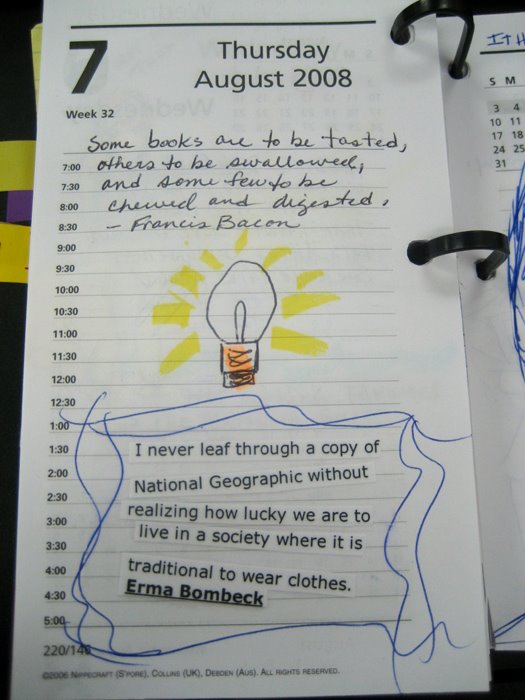 7
Thursday
August 2008
Week 32
Some books are to be tasted,
7:00 others to be swallowed,
7:30 and some few to be
8:00 chewed and digested.
8:30 - Francis Bacon
9:00
9:30
10:00
10:30
11:00
11:30
12:00
12:30
1:00
1:30 I never leaf through a copy of
2:00 National Geographic without
2:30
3:00 realizing how lucky we are to
3:30 live in a society where it is
4:00 traditional to wear clothes.
4:30 Erma Bombeck
5:00
220/146
©2006 Nippecraft (S'pore), Collins (UK), Debden (Aus). All rights reserved.
S M
3 4
10 11
17 18
24 25
31